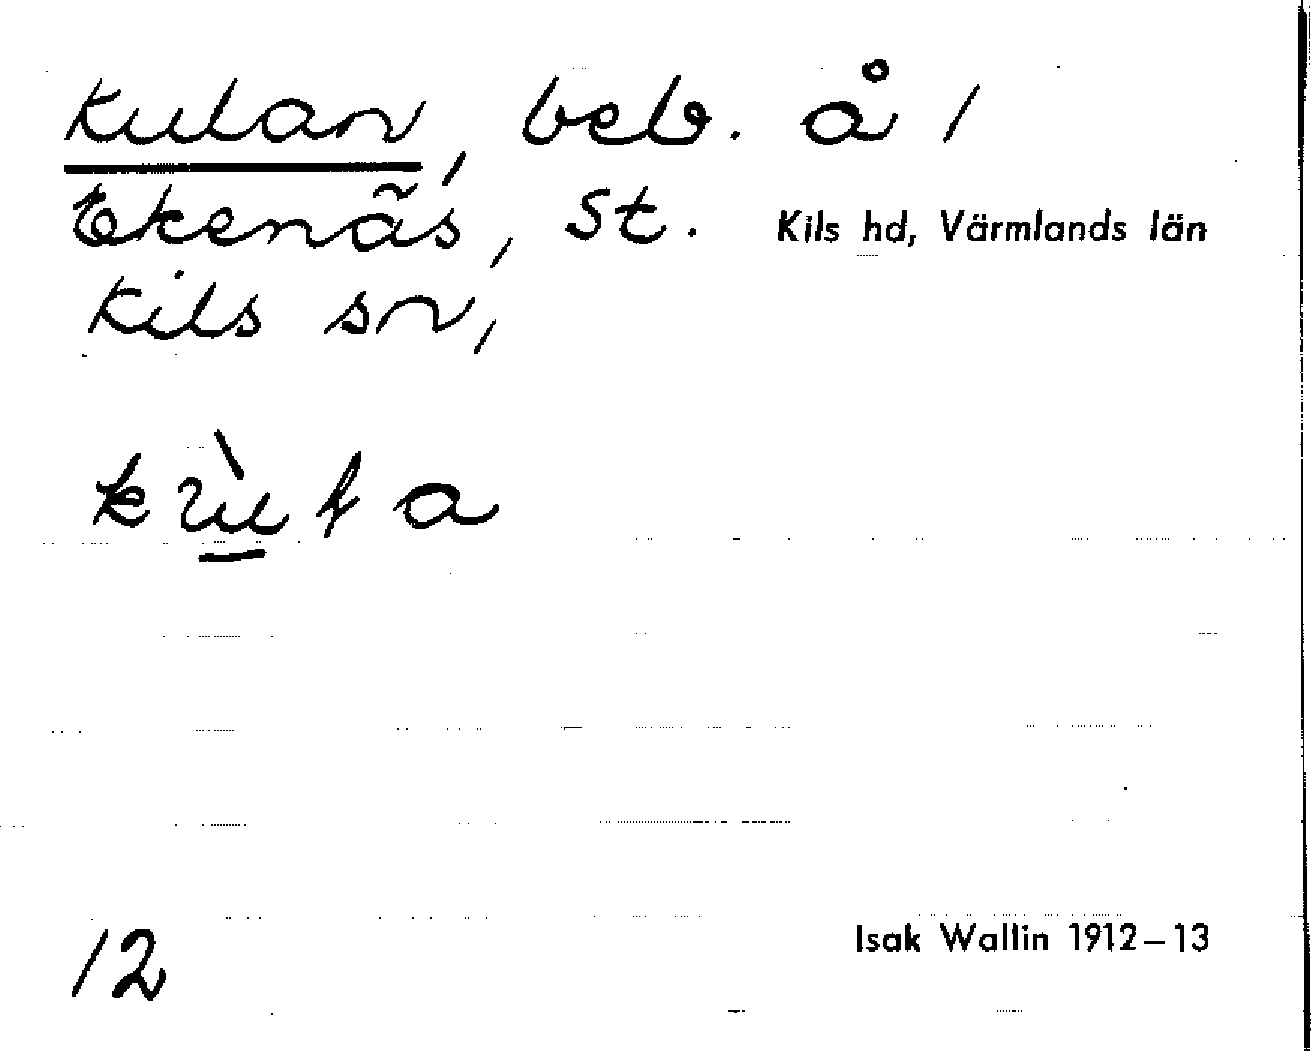 Kulan, beb. å /
Ekenäs, St. Kils hd, Värmlands län
Kils sn,
12
Isak Wallin 1912–13